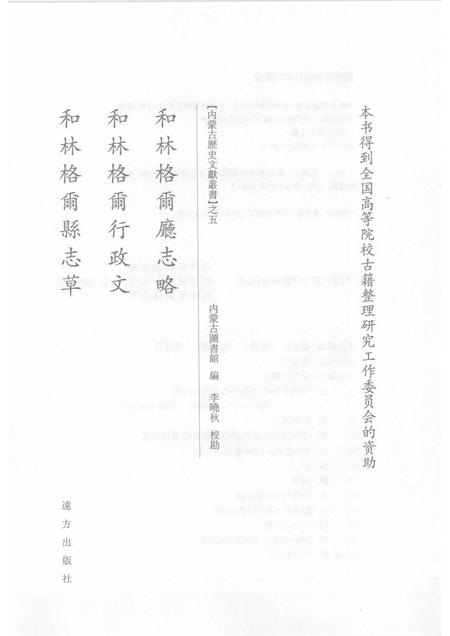 本书得到全国高等院校古籍整理研究工作委员会的资助
【内蒙古歷史文獻叢書】之五
内蒙古圖書館 編 李曉秋 校勘
和林格爾廳志略
和林格爾行政文
和林格爾縣志草
遠方出版社